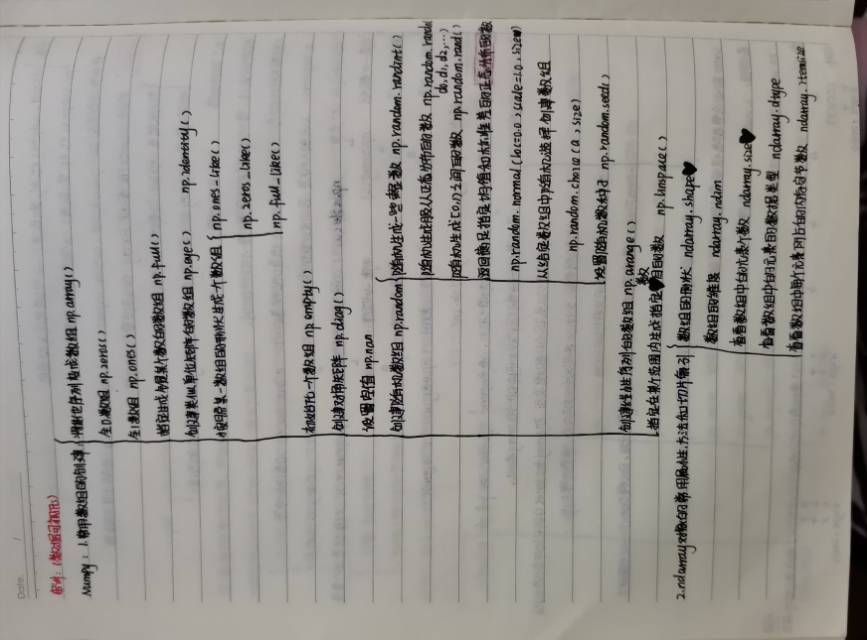 Date. /
Numpy: 1.常用数组的创建
将其它序列转成数组 np.array()
全0数组 np.zeros()
全1数组 np.ones()
指定生成为某个数值的数组 np.full()
创建类似单位矩阵的数组 np.eye() np.identity()
按照某一数组的形状生成一个数组 np.ones_like()
np.zeros_like()
np.full_like()
初始化一个数组 np.empty()
创建对角矩阵 np.diag()
设置空值 np.nan
创建随机数组 np.random
随机生成一些整数 np.random.randint()
随机生成服从正态分布的数 np.random.randn(
d0,d1,d2,...)
随机生成[0,1)之间的数 np.random.rand()
返回满足指定均值和标准差的正态分布的数
np.random.normal(loc=0.0,scale=1.0,size=)
从给定数组中随机选择创建数组
np.random.choice(a,size)
设置随机数种子 np.random.seed()
创建线性序列的数组 np.arange()
指定在某个范围内生成指定数目的数 np.linspace()
2.ndarray对象的常用属性、方法和切片索引
数组的形状 ndarray.shape
数组的维度 ndarray.ndim
查看数组中的元素个数 ndarray.size
查看数组中的元素的数据类型 ndarray.dtype
查看数组中每个元素所占的内存字节数 ndarray.itemsize